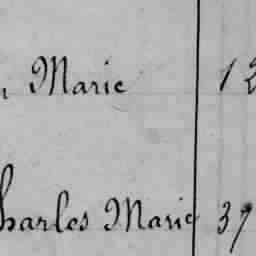 Marie 12
Charles Marie 37